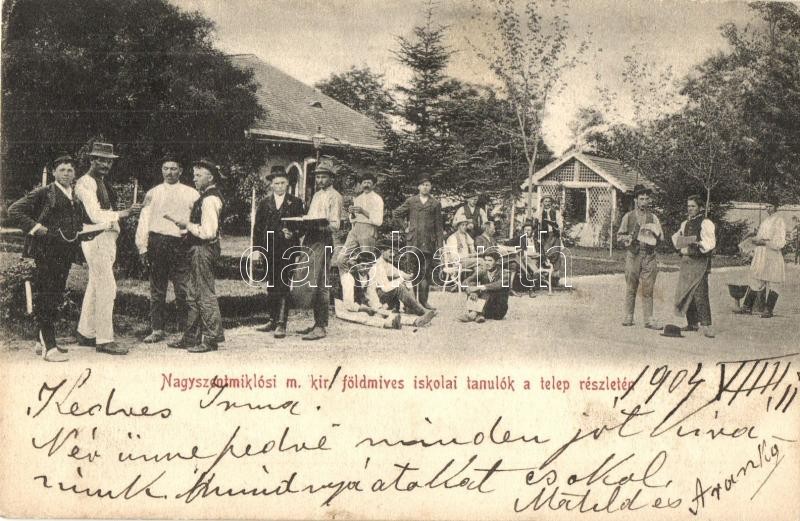 darabanth.com
Nagyszentmiklósi m. kir. földmives iskolai tanulók a telep részletén
1904 VIIII/11
Kedves Irma.
Név ünnepedre minden jót kivá-
nunk mindnyájatokat csokol
Matild és Aranka